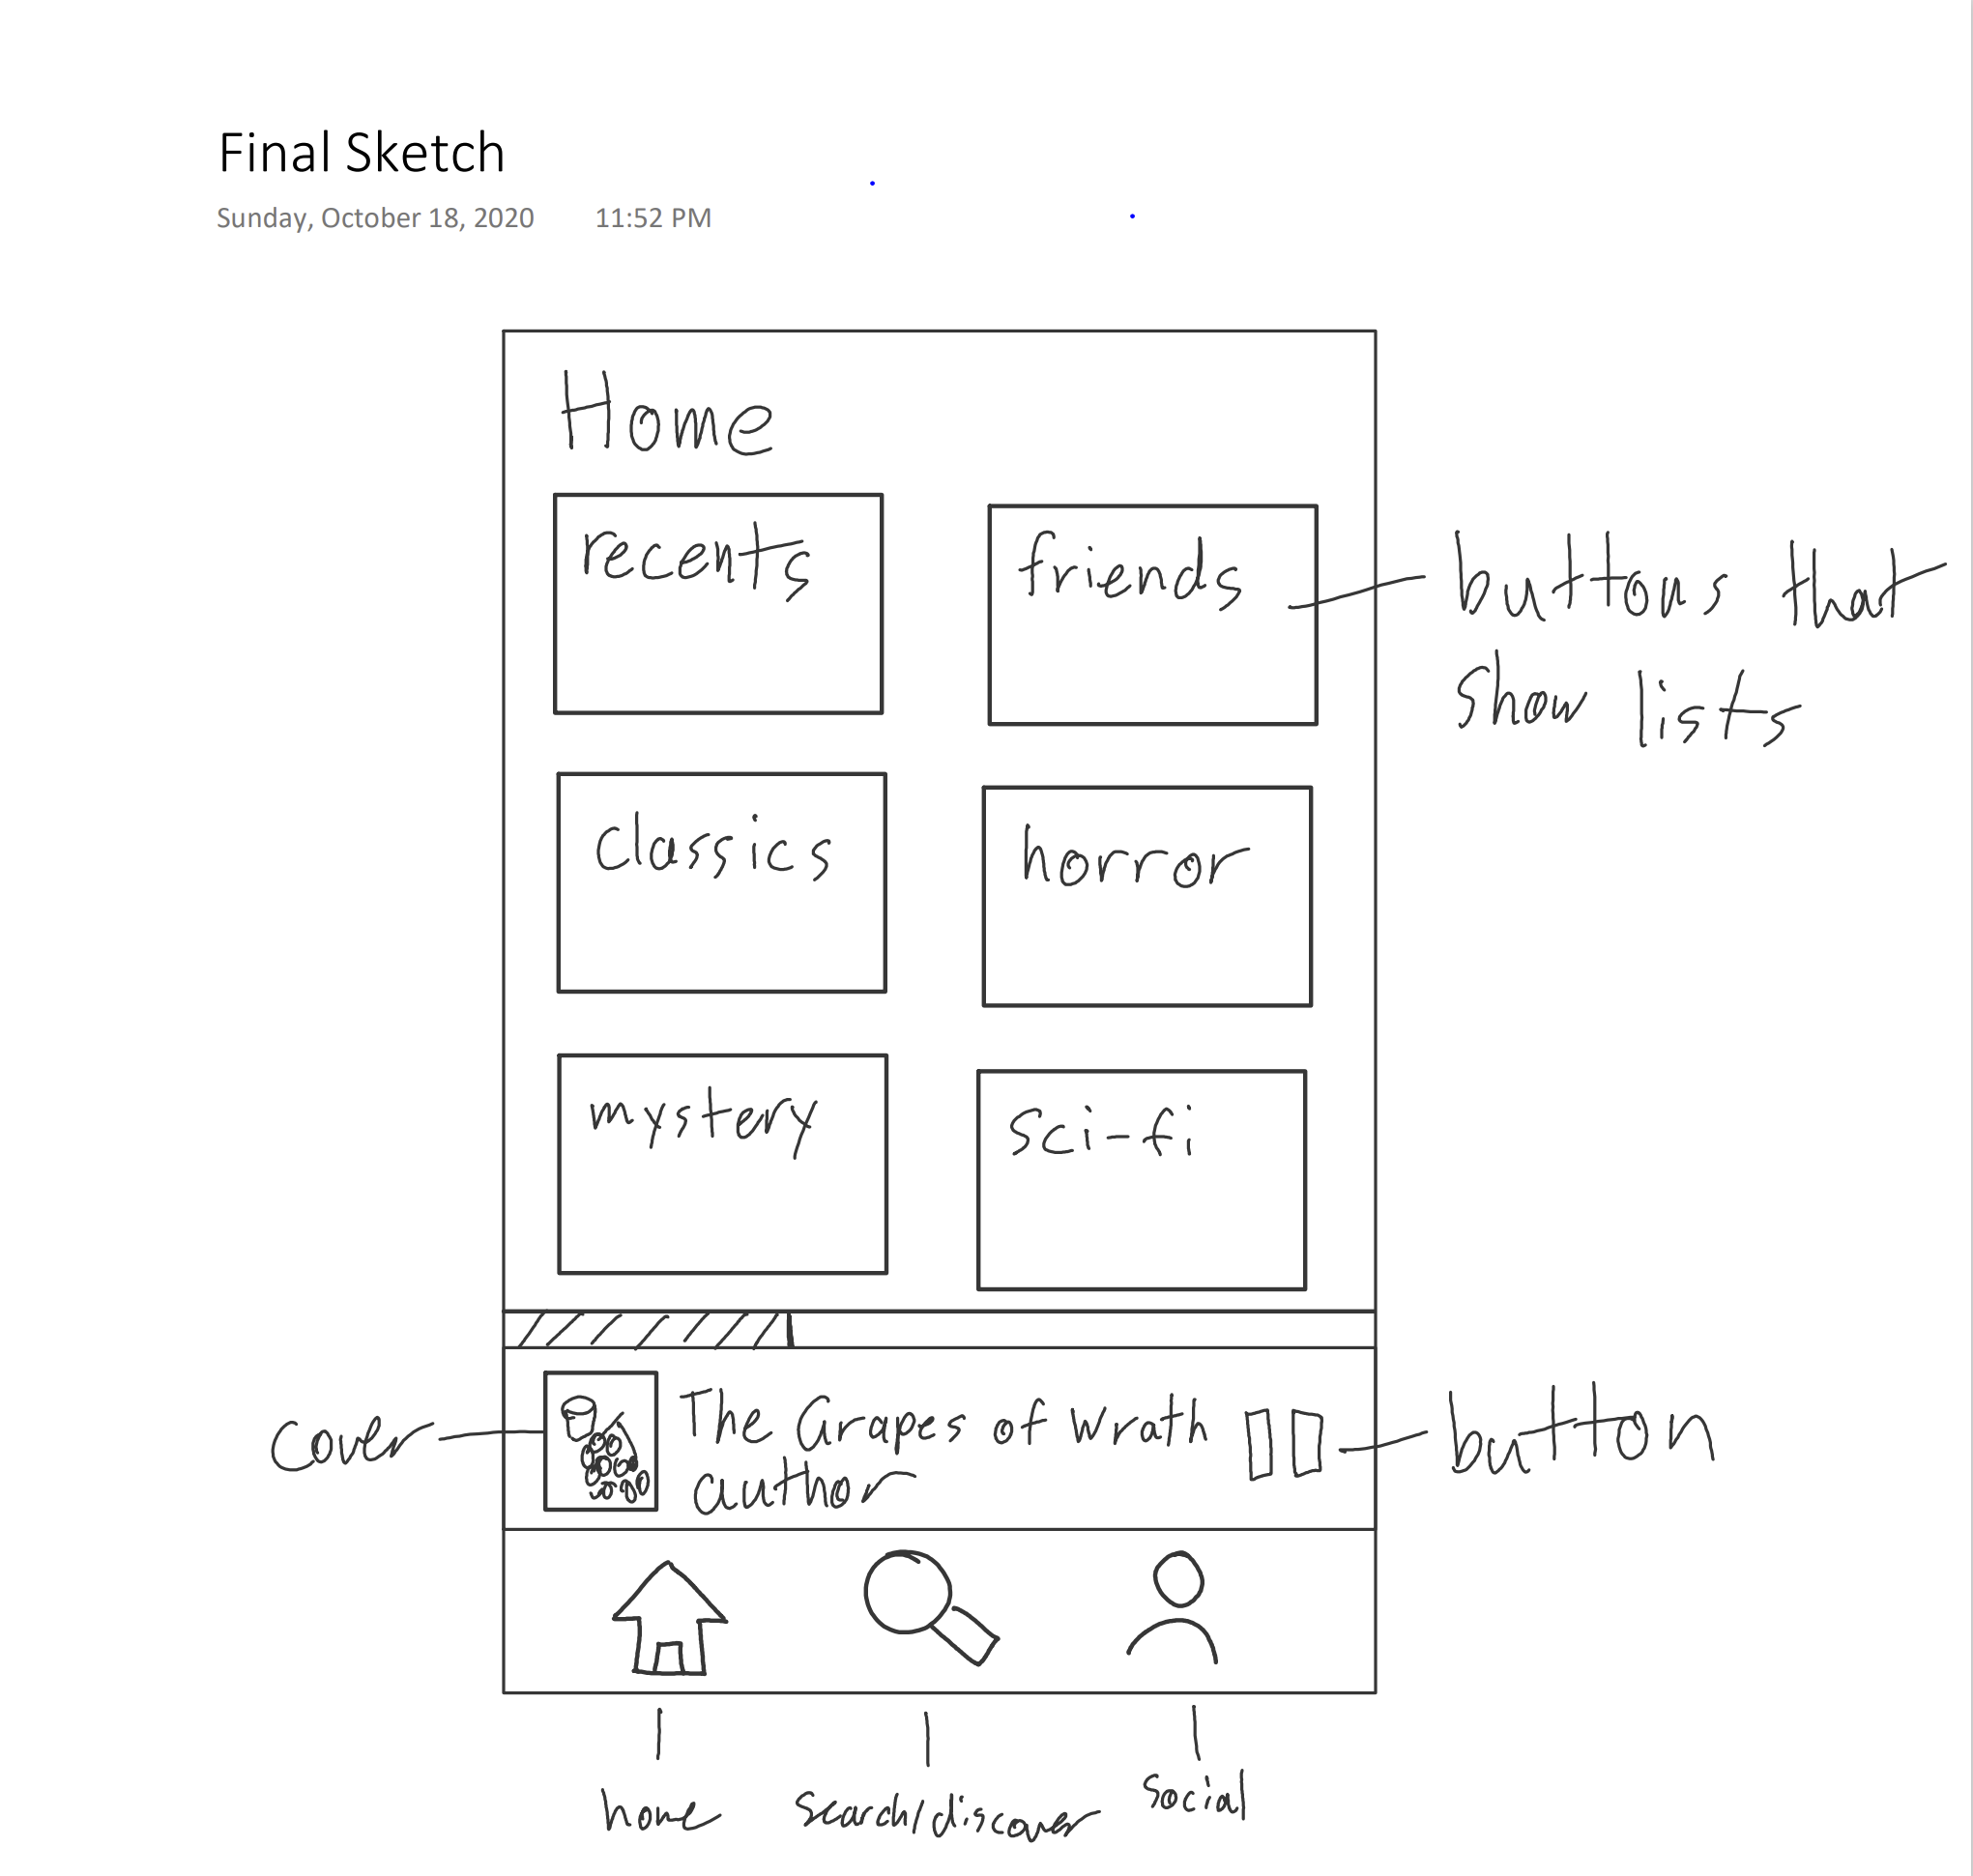 Final Sketch
Sunday, October 18, 2020 11:52 PM
Home
recents
friends
buttons that
show lists
classics
horror
mystery
sci-fi
cover
The Grapes of Wrath
author
button
home
search/discover
social